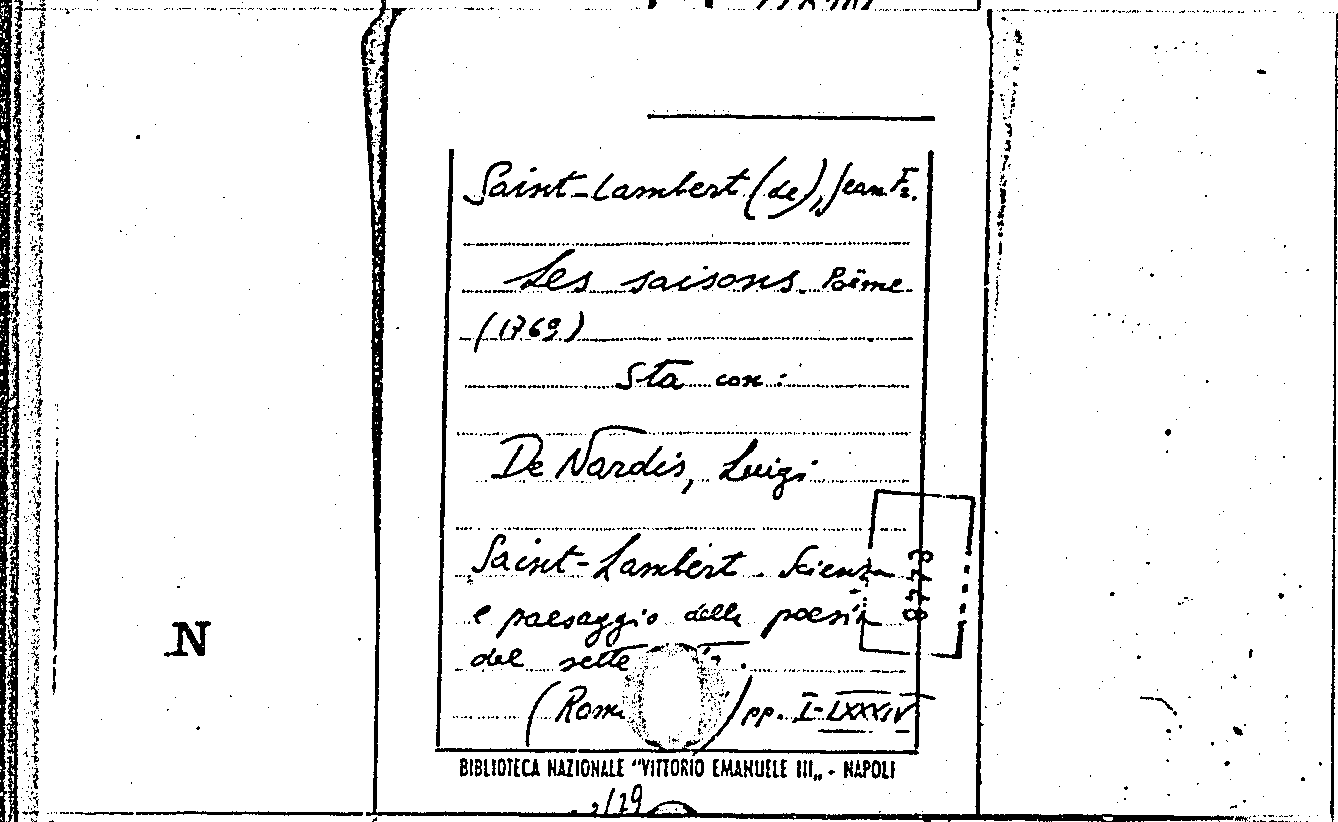 Saint-Lambert (de), Jean Fr.
Les saisons. Poëme
(1769)
Sta con:
De Nardis, Luigi
Saint-Lambert. Scienza
e paesaggio della poesia
del sette
(Roma ) pp. I-LXXXIV
8773
N
BIBLIOTECA NAZIONALE "VITTORIO EMANUELE III„ - NAPOLI